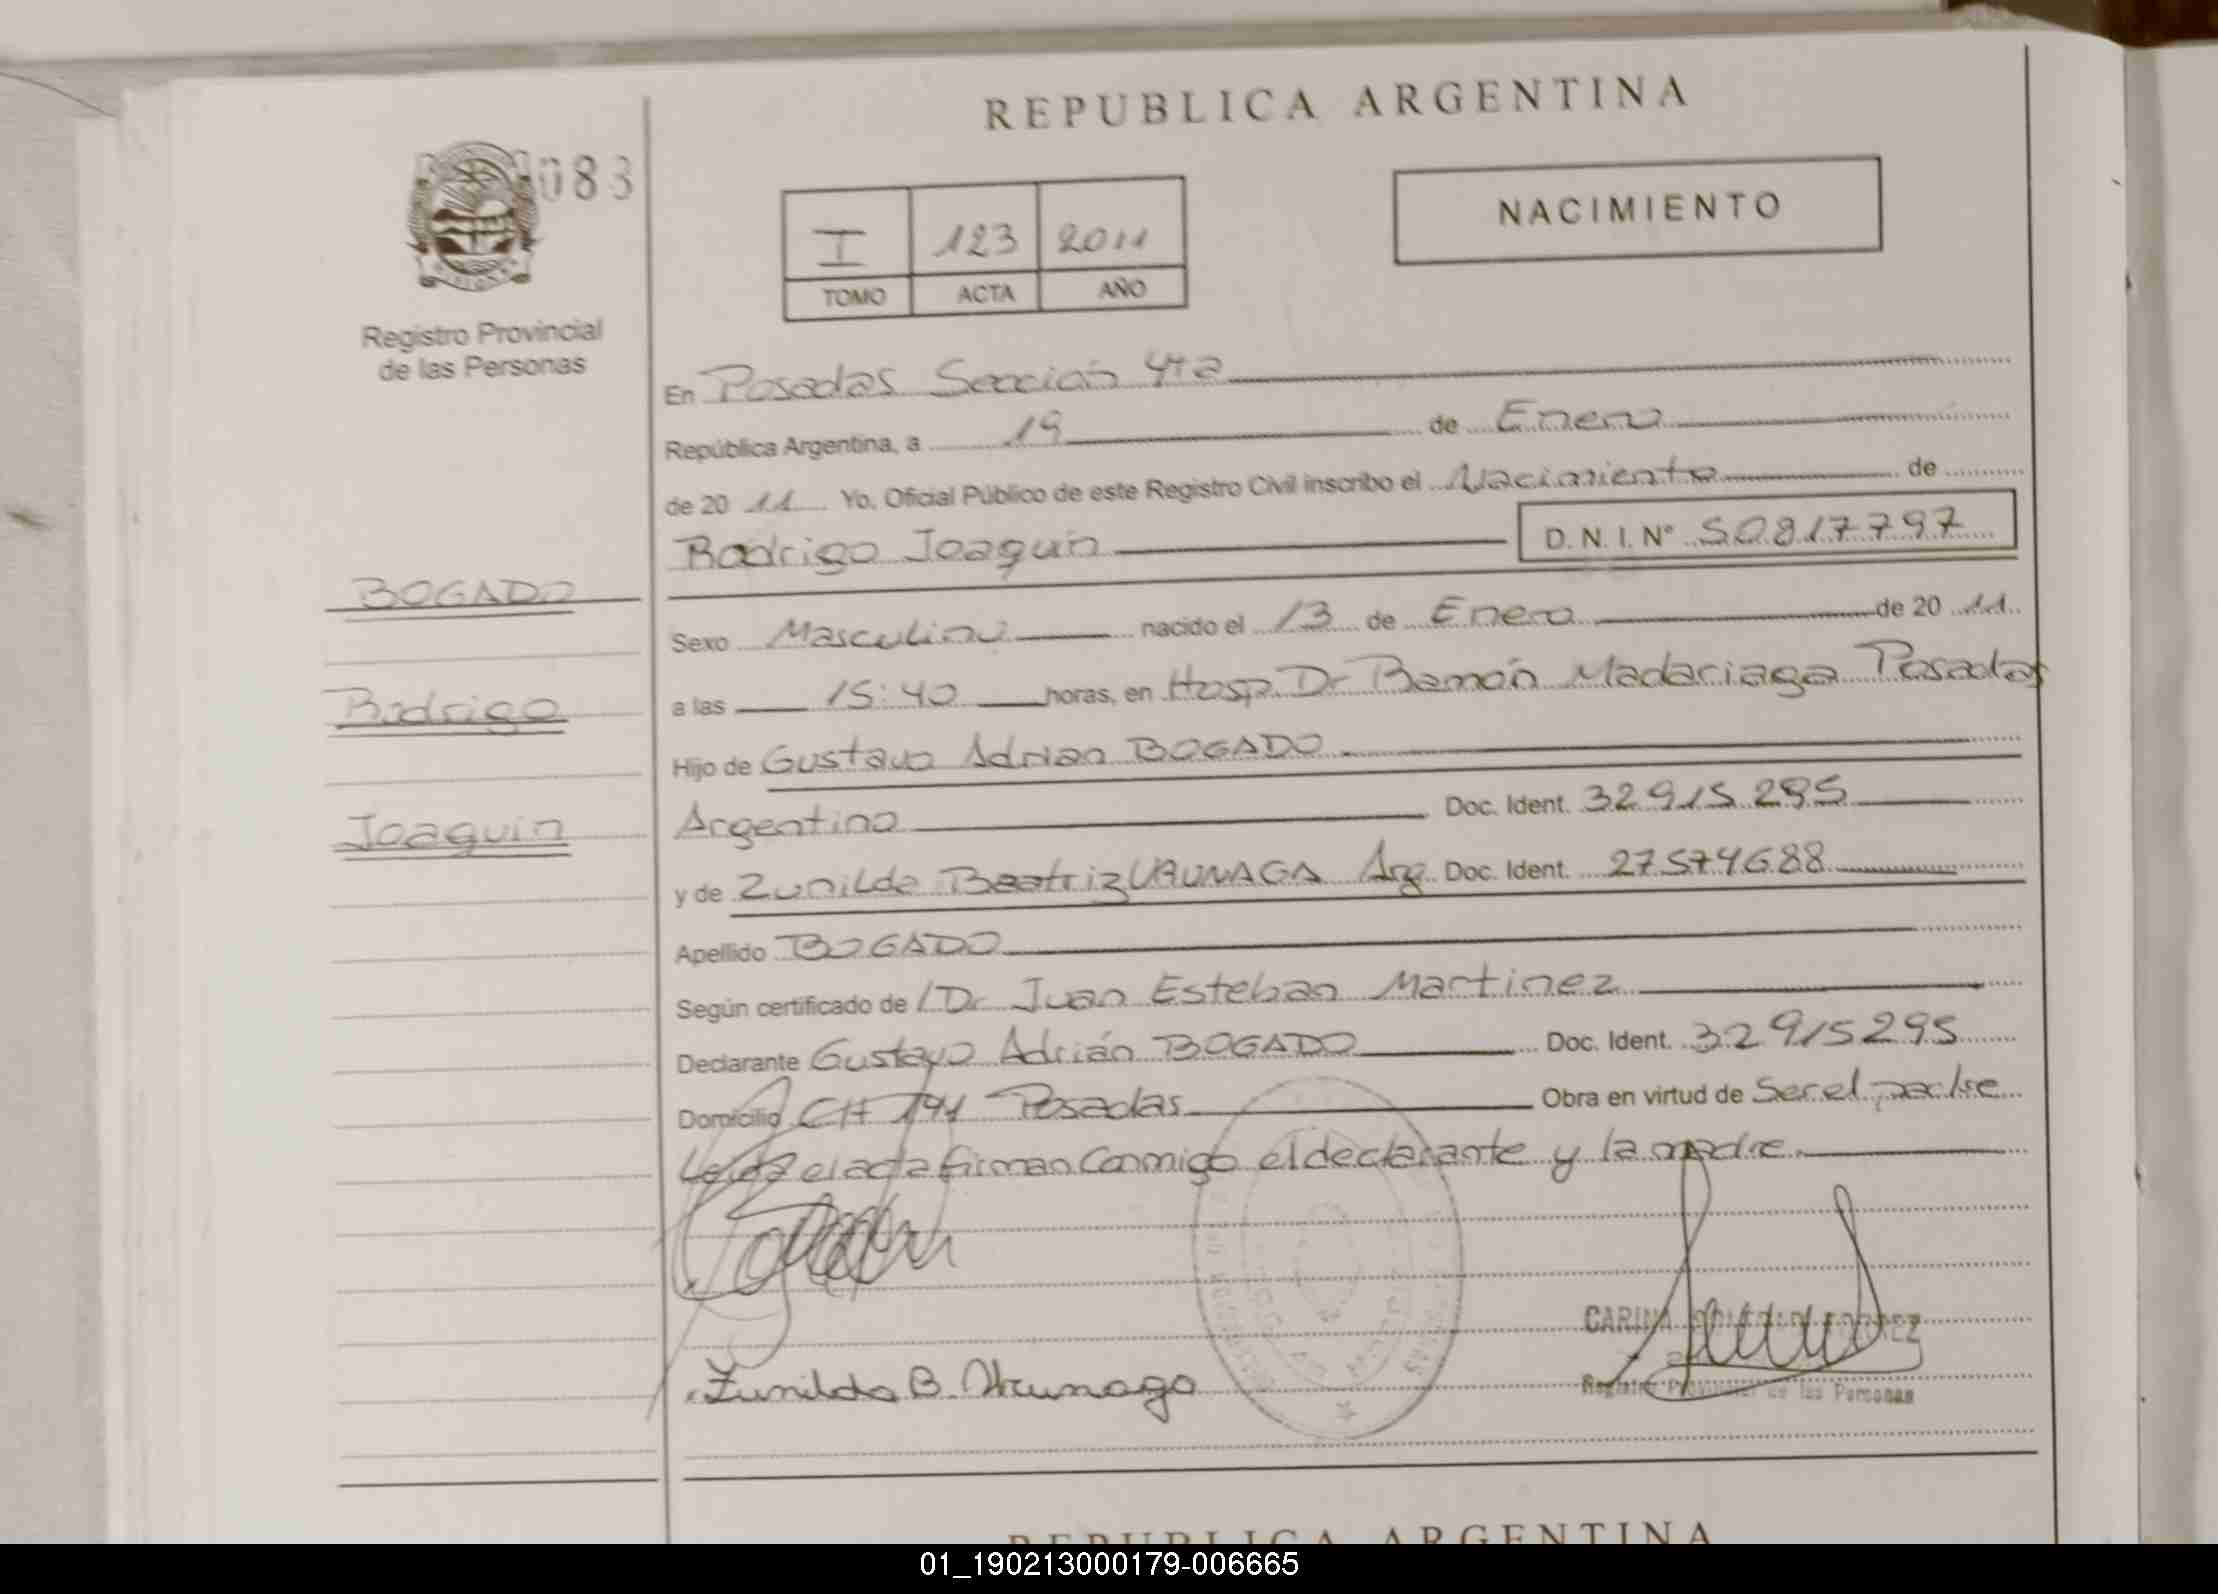 REPUBLICA ARGENTINA
083
NACIMIENTO
I 123 2011
TOMO ACTA AÑO
Registro Provincial
de las Personas
En Posadas Sección 4ta
República Argentina, a 19 de Enero
de 20 11 Yo, Oficial Público de este Registro Civil inscribo el Nacimiento de
Rodrigo Joaquin D. N. I. Nº 50817797
BOGADO
Sexo Masculino nacido el 13 de Enero de 20 11
Rodrigo
a las 15:40 horas, en Hosp. Dr Ramón Madariaga Posadas
Hijo de Gustavo Adrian BOGADO
Joaquin
Argentino Doc. Ident. 32915295
y de Zunilda Beatriz URUNAGA Arg Doc. Ident. 27574688
Apellido BOGADO
Según certificado de Dr Juan Esteban Martinez
Declarante Gustavo Adrián BOGADO Doc. Ident. 32915295
Domicilio CH 191 Posadas Obra en virtud de Ser el padre
Leída el acta firman Conmigo el declarante y la madre
CARINA
Zunilda B. Urunaga
Registro Provincial de las Personas
REPUBLICA ARGENTINA
01_190213000179-006665